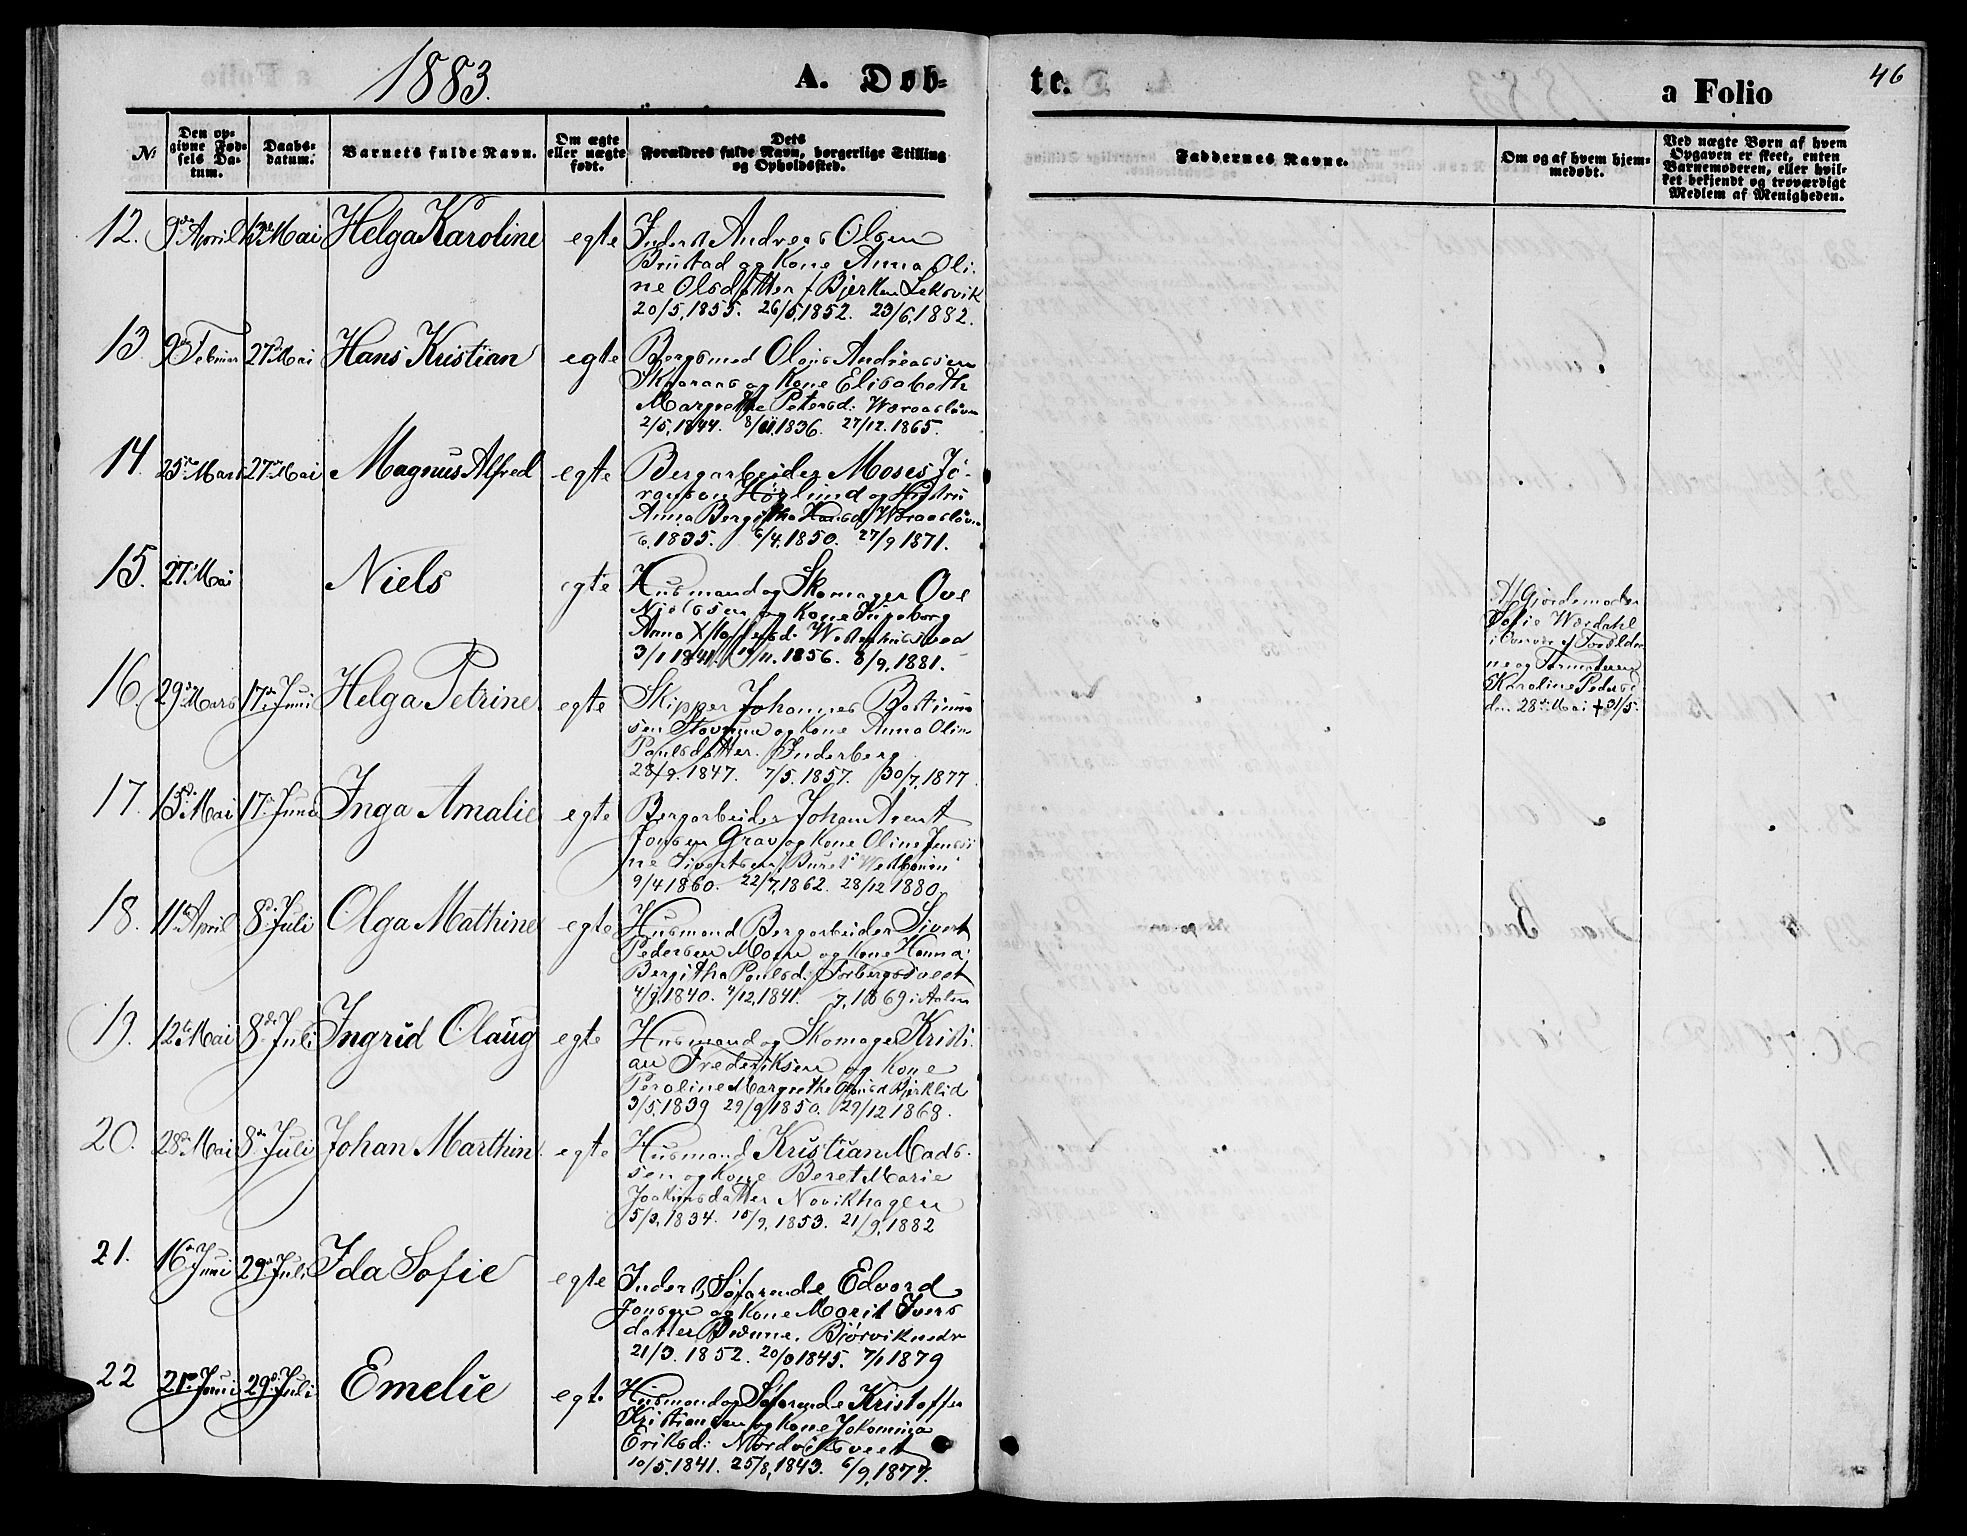 1883.
A. Døb-
te.
a Folio
46
No
Den op-
givne Fød-
sels Da-
tum.
Daabs-
datum.
Barnets fulde Navn.
Om ægte
eller uægte
født.
Dets
Forældres fulde Navn, borgerlige Stilling
og Opholdssted.
Faddernes Navne.
Om og af hvem hjem-
medøbt.
Ved uægte Børn af hvem
Opgaven er skeet, enten
Barnemoderen, eller hvil-
ket bekjendt og troværdigt
Medlem af Menigheden.
12. 9de April 13de Mai Helga Karoline egte Inderst Andreas Olsen
Brustad og Kone Anna Oli-
ne Olsdatter f Bjerken Leksvik
20/5, 1855. 26/5, 1852. 23/6, 1882.
13. 9de Februar 27de Mai Hans Kristian egte Bergsmed Olaus Andreassen
og Kone Elisabeth
Margrethe Petersd:
2/5, 1844. 1836. 27/12. 1865.
14. 25de Mars 27de Mai Magnus Alfred egte Bergarbeider Moses Jø-
ransen Höglund og Hustru
Anna Bergitha Hansd
6. 1835. 6/4, 1850. 27/9 1871.
15. 27de Mai Niels egte Husmand og Skomager Ove
Nielssen og Kone Ingeborg
Anna
3/1 1841. 1856. 8/9. 1881.
Af Gjordemoder
Sofie Werdahl
i Overvær af Foreldre-
ne og Farmoderen
Karoline Pedersd
den 28de Mai † 31/5.
16. 29de Mars 17de Juni Helga Petrine egte Skipper Johannes Bastian-
sen og Kone Anna Olin
Paulsdatter. Inderberg
28/9. 1847. 7/5. 1857. 30/7, 1877
17. 15de Mai 17de Juni Inga Amalie egte Bergarbeider Johan Arent
Jonsen Grav og Kone Oline Jensi-
ne Sivertsen
9/4 1860. 22/7, 1862. 28/12 1880.
18. 11te April 8de Juli Olga Mathine egte Husmand Bergarbeider Sivert
Pedersen Moen og Kone Hanna
Bergitha Paulsd:
4/9, 1840. 4/12, 1841. 7, 1869 i Aalen
19. 12te Mai 8de Juli Ingrid Olaug egte Husmand og Skomager Kristi-
an Frederiksen og Kone
Peroline Margrethe Bjerklid
3/5, 1839 29/9, 1850. 29/12 1868.
20. 28de Mai 8de Juli Johan Marthin. egte Husmand Kristian Mads-
sen og Kone Beret Marie
Joakimsdatter Navikhagen
5/3, 1834. 15/9, 1853. 21/9, 1882
21. 16de Juni 29de Juli Ida Sofie egte Inderst, Søfarende Edvard
Jonsen og Kone Marit Ivers
datter
21/3. 1852. 1845. 7/1 1879
22 21de Juni 29de Juli Emelie egte Husmand og Søfarende Kristoffer
Kristiansen og Kone Jakomina
Eriksd: Nordviksveet
10/5, 1841. 25/8, 1843. 6/9, 1877.